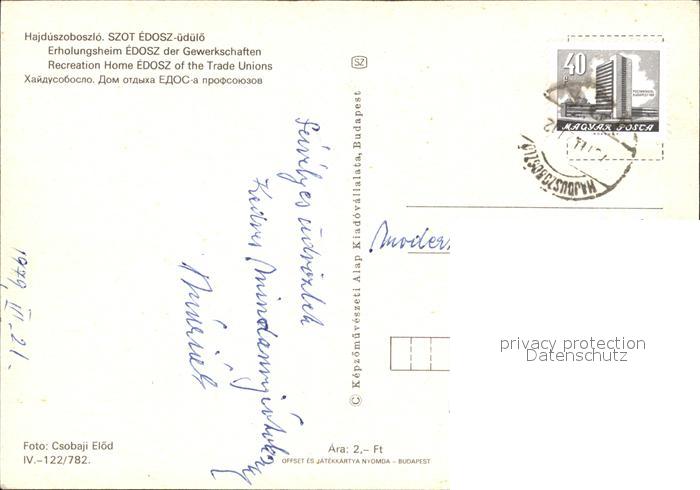 Hajdúszoboszló. SZOT ÉDOSZ-üdülő
Erholungsheim ÉDOSZ der Gewerkschaften
Recreation Home ÉDOSZ of the Trade Unions
Хайдусобосло. Дом отдыха ЕДОС-а профсоюзов
SZ
40
MAGYAR POSTA
HAJDUSZOBOSZLÓ
© Képzőművészeti Alap Kiadóvállalata, Budapest
Szívélyes üdvözlet
Kedves Mindannyiótoknak
1979. III. 21.
privacy protection
Datenschutz
Foto: Csobaji Előd
IV.–122/782.
Ára: 2,– Ft
OFFSET ÉS JÁTÉKKÁRTYA NYOMDA – BUDAPEST